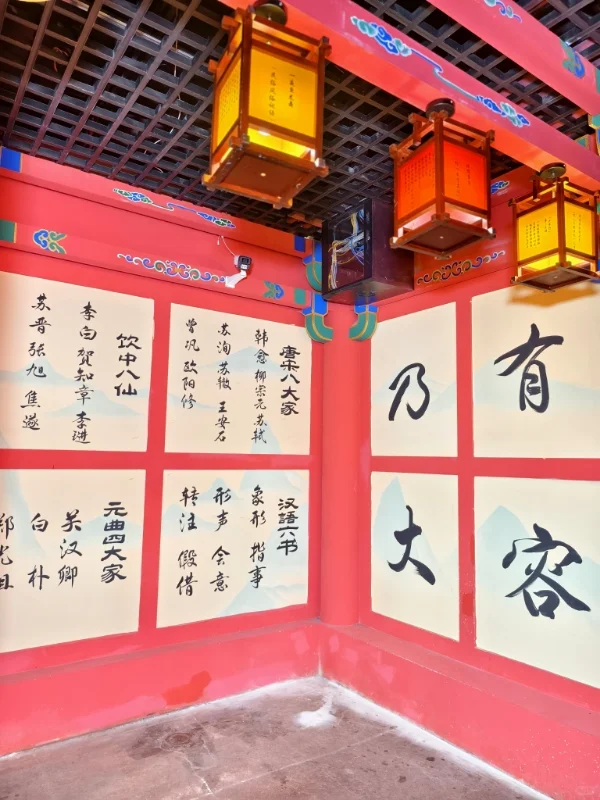 有容
乃大
唐宋八大家
韩愈 柳宗元 苏轼
苏洵 苏辙 王安石
曾巩 欧阳修
饮中八仙
李白 贺知章 李琎
苏晋 张旭 焦遂
汉语六书
象形 指事
形声 会意
转注 假借
元曲四大家
关汉卿
白朴
郑光祖